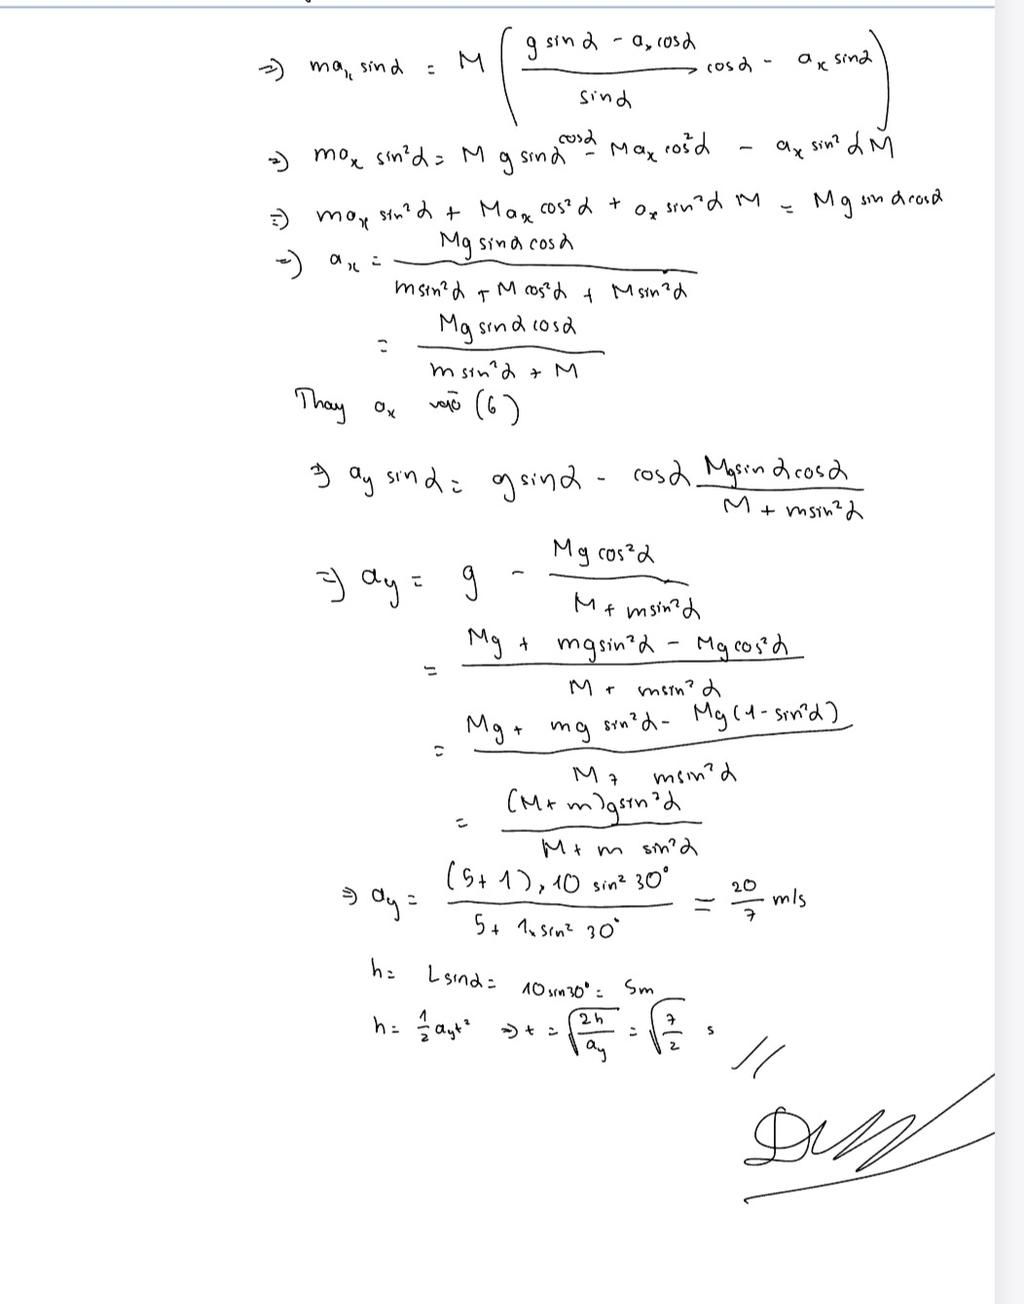 =) maₓ sinα = M ( (g sinα - aₓ cosα)/sinα cosα - aₓ sinα )
=) maₓ sin²α = M g sinα cosα - Maₓ cos²α - aₓ sin²α M
=) maₓ sin²α + Maₓ cos²α + aₓ sin²α M = Mg sinα cosα
=) aₓ = Mg sinα cosα / (m sin²α + M cos²α + M sin²α)
= Mg sinα cosα / (m sin²α + M)
Thay aₓ vào (6)
=) ay sinα = g sinα - cosα Mg sinα cosα / (M + m sin²α)
=) ay = g - Mg cos²α / (M + m sin²α)
= (Mg + mg sin²α - Mg cos²α) / (M + m sin²α)
= (Mg + mg sin²α - Mg (1 - sin²α)) / (M + m sin²α)
= (M + m) g sin²α / (M + m sin²α)
=) ay = (5 + 1). 10 sin² 30° / (5 + 1 x sin² 30°) = 20/7 m/s
h = L sinα = 10 sin 30° = 5m
h = 1/2 ay t² => t = √(2h/ay) = √(7/2) s